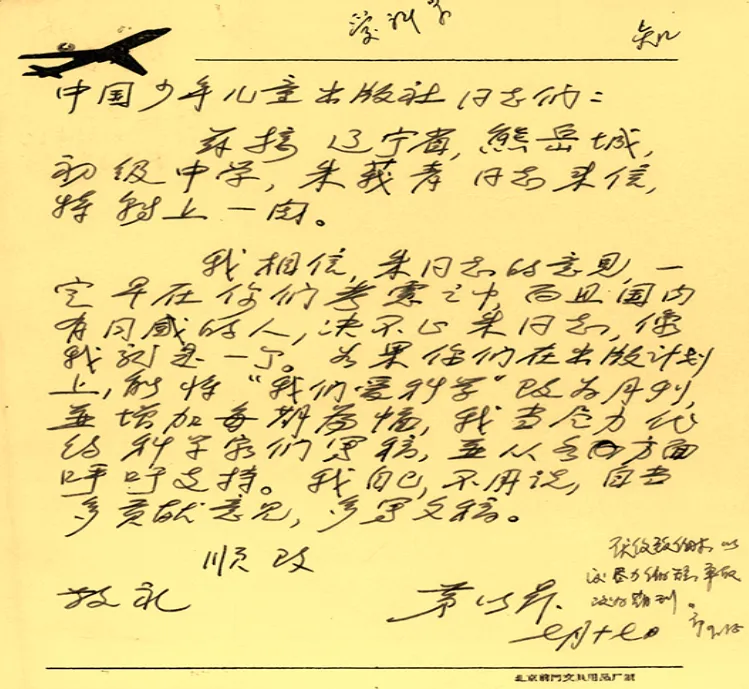 中国少年儿童出版社同志们：
兹接辽宁省，熊岳城，
初级中学，朱莪孝同志来信，
特转上一阅。
我相信，朱同志的意见，一
定早在你们考虑之中，而且国内
有同感的人，决不止朱同志，像
我就是一个。如果你们在出版计划
上，能将“我们爱科学”改为月刊，
并增加每期篇幅，我当尽力代
约科学家们写稿，并从各方面
呼吁支持。我自己，不用说，自当
多贡献意见，多写文稿。
顺致
敬礼
茅以升.
七月十七日
北京前门文具用品厂制